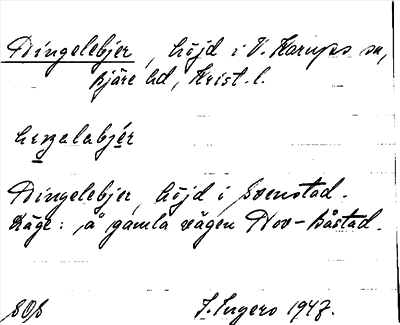 Dingelebjer, höjd i V. Karups sn,
Bjäre hd, Krist. l.
Dingelebjer, höjd i Svenstad.
Läge: å gamla vägen Dov-Båstad.
SOS J. Ingers 1947.